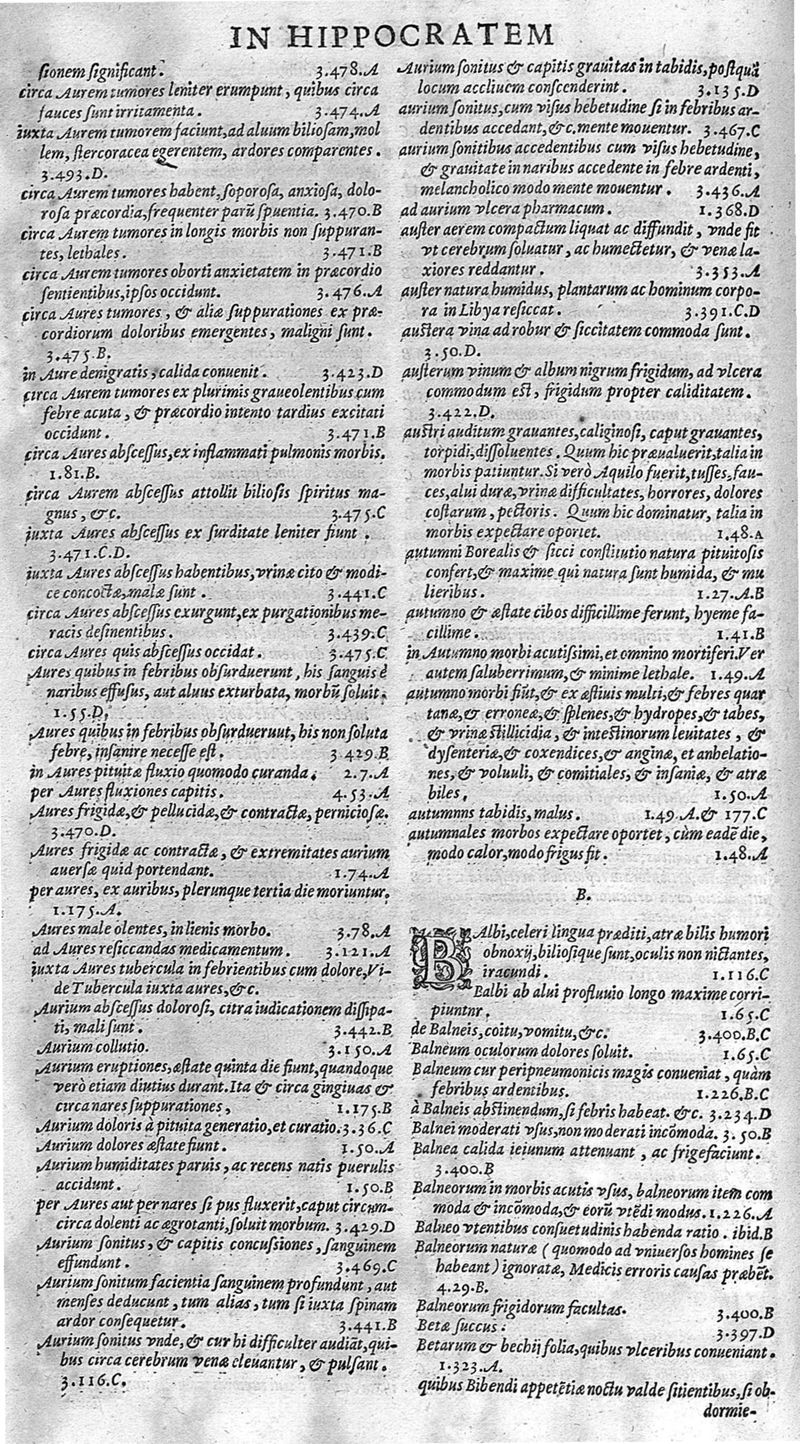 IN HIPPOCRATEM
sionem significant. 3.478.A
circa Aurem tumores leniter erumpunt, quibus circa
fauces sunt irritamenta. 3.474.A
iuxta Aurem tumorem faciunt, ad aluum biliosam, mol
lem, stercoracea egerentem, ardores comparentes.
3.493.D.
circa Aurem tumores habent, soporosa, anxiosa, dolo-
rosa præcordia, frequenter parũ spuentia. 3.470.B
circa Aurem tumores in longis morbis non suppuran-
tes, lethales. 3.471.B
circa Aurem tumores oborti anxietatem in præcordio
sentientibus, ipsos occidunt. 3.476.A
circa Aures tumores, & aliæ suppurationes ex præ-
cordiorum doloribus emergentes, maligni sunt.
3.475.B.
in Aure denigratis, calida conuenit. 3.423.D
circa Aurem tumores ex plurimis graueolentibus cum
febre acuta, & præcordio intento tardius excitati
occidunt. 3.471.B
circa Aures abscessus, ex inflammati pulmonis morbis.
1.81.B.
circa Aurem abscessus attollit biliosis spiritus ma-
gnus, &c. 3.475.C
iuxta Aures abscessus ex surditate leniter fiunt.
3.471.C.D.
iuxta Aures abscessus habentibus, vrinæ cito & modi-
ce concoctæ, malæ sunt. 3.441.C
circa Aures abscessus exurgunt, ex purgationibus me-
racis desinentibus. 3.439.C
circa Aures quis abscessus occidat. 3.475.C
Aures quibus in febribus obsurduerunt, his sanguis è
naribus effusus, aut aluus exturbata, morbũ soluit.
1.55.D.
Aures quibus in febribus obsurdueruut, his non soluta
febre, insanire necesse est. 3 429.B
in Aures pituitæ fluxio quomodo curanda. 2.7.A
per Aures fluxiones capitis. 4.53.A
Aures frigidæ, & pellucidæ, & contractæ, perniciosæ.
3.470.D.
Aures frigidæ ac contractæ, & extremitates aurium
auersæ quid portendant. 1.74.A
per aures, ex auribus, plerunque tertia die moriuntur,
1.175.A.
Aures male olentes, in lienis morbo. 3.78.A
ad Aures resiccandas medicamentum. 3.121.A
iuxta Aures tubercula in febrientibus cum dolore, Vi-
de Tubercula iuxta aures, &c.
Aurium abscessus dolorosi, citra iudicationem dissipa-
ti, mali sunt. 3.442.B
Aurium collutio. 3.150.A
Aurium eruptiones, æstate quinta die fiunt, quandoque
verò etiam diutius durant. Ita & circa gingiuas &
circa nares suppurationes, 1.175.B
Aurium doloris à pituita generatio, et curatio. 3.36.C
Aurium dolores æstate fiunt. 1.50.A
Aurium humiditates paruis, ac recens natis puerulis
accidunt. 1.50.B
per Aures aut per nares si pus fluxerit, caput circum-
circa dolenti ac ægrotanti, soluit morbum. 3.429.D
Aurium sonitus, & capitis concussiones, sanguinem
effundunt. 3.469.C
Aurium sonitum facientia sanguinem profundunt, aut
menses deducunt, tum alias, tum si iuxta spinam
ardor consequetur. 3.441.B
Aurium sonitus vnde, & cur hi difficulter audiãt, qui-
bus circa cerebrum venæ eleuantur, & pulsant.
3.116.C.
Aurium sonitus & capitis grauitas in tabidis, postquã
locum accliuem conscenderint. 3.135.D
aurium sonitus, cum visus hebetudine si in febribus ar-
dentibus accedant, &c, mente mouentur. 3.467.C
aurium sonitibus accedentibus cum visus hebetudine,
& grauitate in naribus accedente in febre ardenti,
melancholico modo mente mouentur. 3.436.A
ad aurium vlcera pharmacum. 1.368.D
auster aerem compactum liquat ac diffundit, vnde fit
vt cerebrum soluatur, ac humectetur, & venæ la-
xiores reddantur. 3.353.A
auster natura humidus, plantarum ac hominum corpo-
ra in Libya resiccat. 3.391.C.D
austera vina ad robur & siccitatem commoda sunt.
3.50.D.
austerum vinum & album nigrum frigidum, ad vlcera
commodum est, frigidum propter caliditatem.
3.422.D.
austri auditum grauantes, caliginosi, caput grauantes,
torpidi, dissoluentes. Quum hic præualuerit, talia in
morbis patiuntur. Si verò Aquilo fuerit, tusses, fau-
ces, alui duræ, vrinæ difficultates, horrores, dolores
costarum, pectoris. Quum hic dominatur, talia in
morbis expectare oportet. 1.48.A
autumni Borealis & sicci constitutio natura pituitosis
confert, & maxime qui natura sunt humida, & mu
lieribus. 1.27.A.B
autumno & æstate cibos difficillime ferunt, hyeme fa-
cillime. 1.41.B
in Autumno morbi acutissimi, et omnino mortiferi. Ver
autem saluberrimum, & minime lethale. 1.49.A
autumno morbi fiũt, & ex æstiuis multi, & febres quar
tanæ, & erroneæ, & splenes, & hydropes, & tabes,
& vrinæ stillicidia, & intestinorum leuitates, &
dysenteriæ, & coxendices, & anginæ, et anhelatio-
nes, & voluuli, & comitiales, & insaniæ, & atræ
biles. 1.50.A
autumnns tabidis, malus. 1.49.A. & 177.C
autumnales morbos expectare oportet, cùm eadẽ die,
modo calor, modo frigus fit. 1.48.A
B.
BAlbi, celeri lingua præditi, atræ bilis humori
obnoxij, biliosique sunt, oculis non nictantes,
iracundi. 1.116.C
Balbi ab alui profluuio longo maxime corri-
piuntnr. 1.65.C
de Balneis, coitu, vomitu, &c. 3.400.B.C
Balneum oculorum dolores soluit. 1.65.C
Balneum cur peripneumonicis magis conueniat, quàm
febribus ardentibus. 1.226.B.C
à Balneis abstinendum, si febris habeat. &c. 3.234.D
Balnei moderati vsus, non moderati incõmoda. 3.50.B
Balnea calida ieiunum attenuant, ac frigefaciunt.
3.400.B
Balneorum in morbis acutis vsus, balneorum item com
moda & incõmoda, & eorũ vtẽdi modus. 1.226.A
Balneo vtentibus consuetudinis habenda ratio. ibid.B
Balneorum naturæ (quomodo ad vniuersos homines se
habeant) ignoratæ, Medicis erroris causas præbẽt.
4.29.B.
Balneorum frigidorum facultas. 3.400.B
Betæ succus. 3.397.D
Betarum & bechij folia, quibus vlceribus conueniant.
1.323.A.
quibus Bibendi appetẽtiæ noctu valde sitientibus, si ob-
dormie-